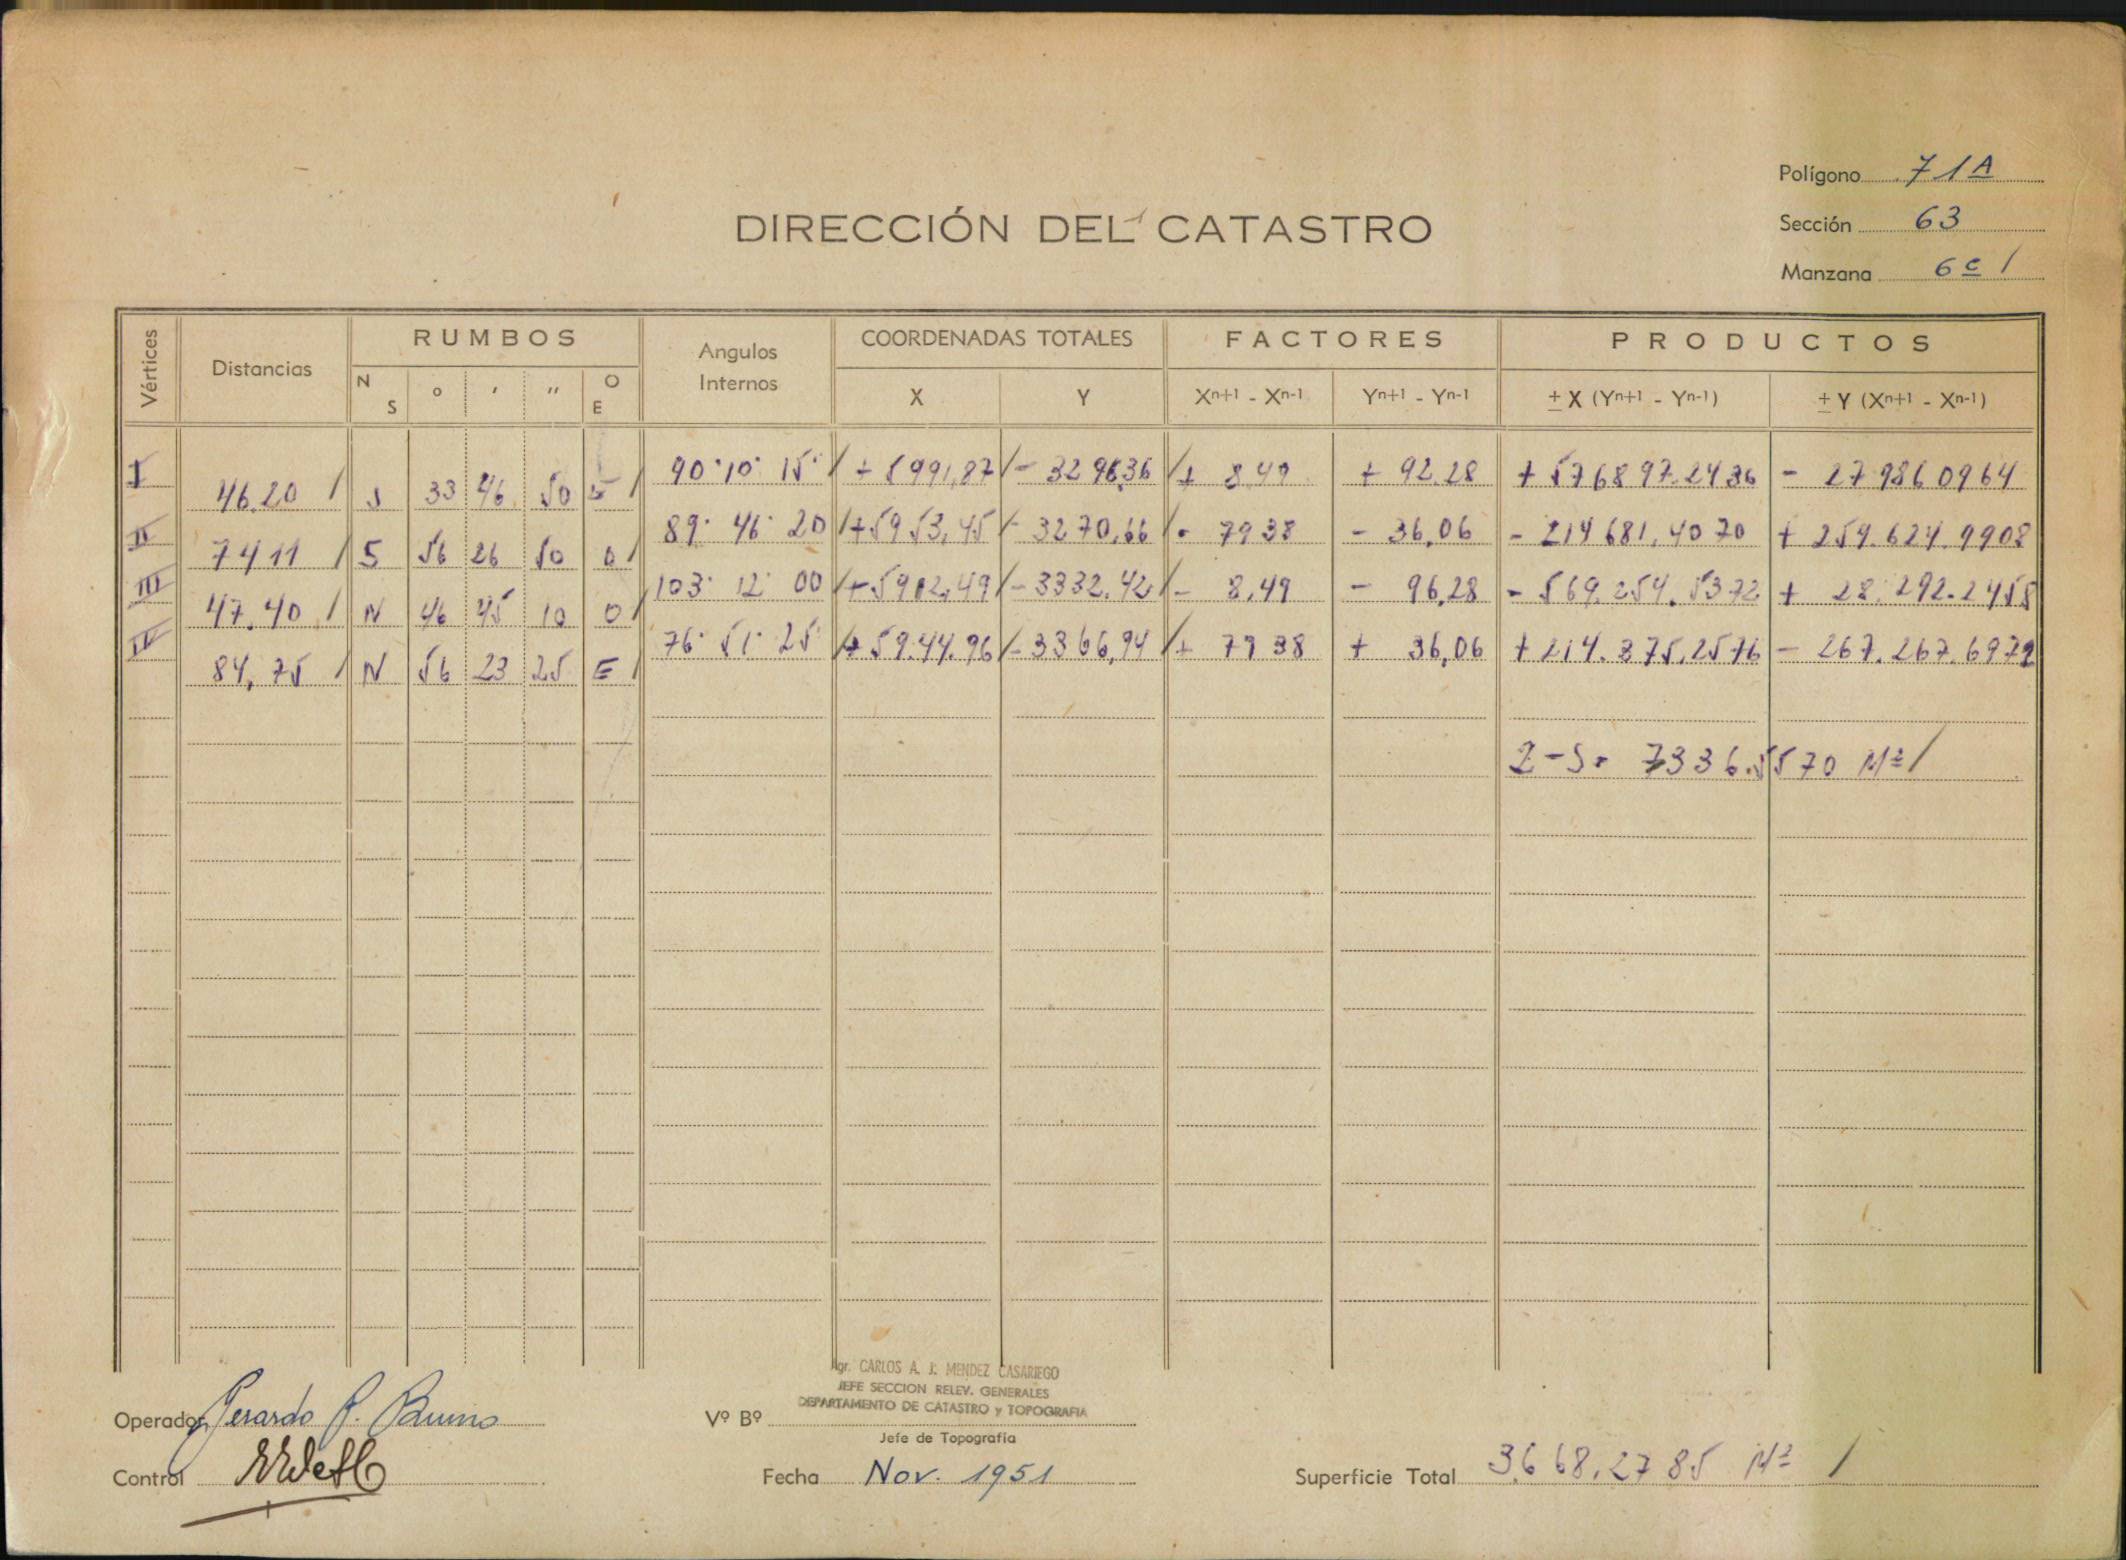 Polígono 71A
Sección 63
Manzana 6c /
DIRECCIÓN DEL CATASTRO
Vértices Distancias RUMBOS Angulos Internos COORDENADAS TOTALES FACTORES PRODUCTOS
N S o ′ ″ O E X Y Xn+1 - Xn-1 Yn+1 - Yn-1 ± X (Yn+1 - Yn-1) ± Y (Xn+1 - Xn-1)
I 90° 10' 15" / + 5991,87 / - 3296,36 / + 8,49 + 92.28 + 576897.2436 - 27986,0964
46.20 / S 33 46 50 /
II 89° 46' 20 / + 5953,45 / - 3270,66 / - 79 38 - 36,06 - 214681,4070 + 259.624.9908
74 11 / S 56 26 50 O /
III 103° 12' 00 / + 5912,49 / - 3332,42 / - 8,49 - 96,28 - 569.254.5372 + 28.292.2458
47.40 / N 46 45 10 O /
IV 76° 51' 25" / + 59.44.96 / - 3366,94 / + 79 38 + 36,06 + 214.375,2576 - 267.267.6972
84,75 / N 56 23 25 E /
2-S= 7336.5570 M² /
Agr. CARLOS A. J. MENDEZ CASARIEGO
JEFE SECCION RELEV. GENERALES
DEPARTAMENTO DE CATASTRO y TOPOGRAFIA
Operador Gerardo Bruno Vº Bº
Jefe de Topografía
Control Fecha Nov. 1951 Superficie Total 3.668.2785 M² /